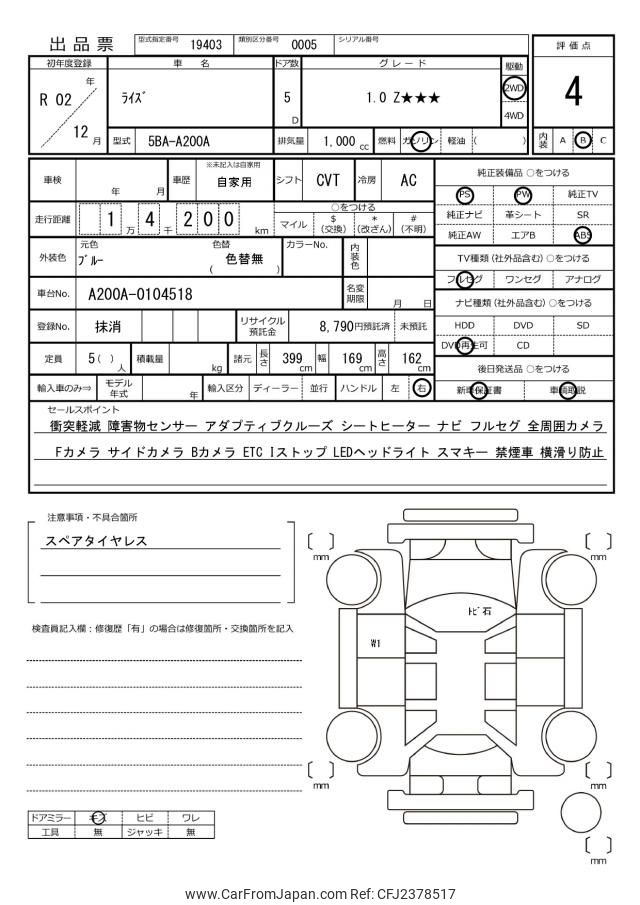 出品票 型式指定番号 19403 類別区分番号 0005 シリアル番号
評価点
4
内装 A B C
初年度登録 車名 ドア数 グレード 駆動
R 02 年 ﾗｲｽﾞ 5 D 1.0 Z★★★ 2WD
4WD
12 月 型式 5BA-A200A 排気量 1,000 cc 燃料 ガソリン 軽油 ( )
車検 年 月 車歴 ※未記入は自家用 自家用 シフト CVT 冷房 AC
走行距離 1 万 4 千 2 0 0 km
○をつける
マイル $ (交換) * (改ざん) # (不明)
外装色 元色 ﾌﾞﾙｰ 色替 ( 色替無 ) カラーNo. 内装色
車台No. A200A-0104518 名変期限 月 日
登録No. 抹消 リサイクル預託金 8,790円預託済 未預託
定員 5 ( ) 人 積載量 kg 諸元 長さ 399 cm 幅 169 cm 高さ 162 cm
輸入車のみ⇒ モデル年式 年 輸入区分 ディーラー 並行 ハンドル 左 右
純正装備品 ○をつける
PS PW 純正TV
純正ナビ 革シート SR
純正AW エアB ABS
TV種類 (社外品含む) ○をつける
フルセグ ワンセグ アナログ
ナビ種類 (社外品含む) ○をつける
HDD DVD SD
DVD再生可 CD
後日発送品 ○をつける
新車保証書 車輌取説
セールスポイント
衝突軽減 障害物センサー アダプティブクルーズ シートヒーター ナビ フルセグ 全周囲カメラ
Fカメラ サイドカメラ Bカメラ ETC Iストップ LEDヘッドライト スマキー 禁煙車 横滑り防止
注意事項・不具合箇所
スペアタイヤレス
検査員記入欄：修復歴「有」の場合は修復箇所・交換箇所を記入
mm
mm
ﾄﾋﾞ石
W1
mm
mm
mm
ドアミラー キズ ヒビ ワレ
工具 無 ジャッキ 無
www.CarFromJapan.com Ref: CFJ2378517